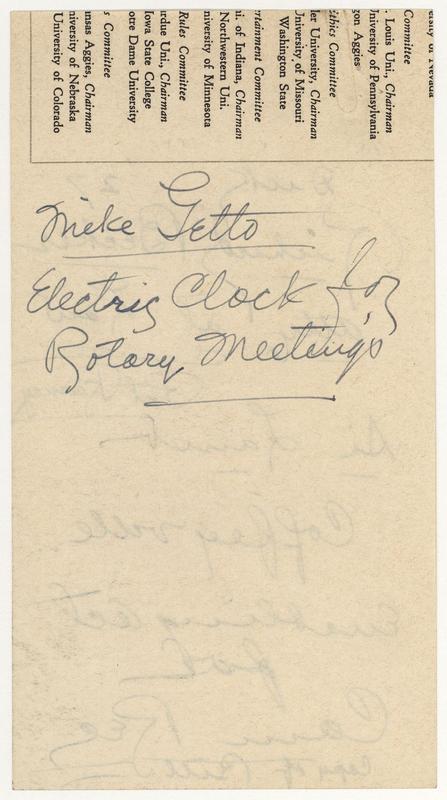 Mike Getto
Electric Clock for
Rotary Meetings
ersity of Nevada
Committee
. Louis Uni., Chairman
University of Pennsylvania
gon Aggies
Ethics Committee
ler University, Chairman
University of Missouri
Washington State
ertainment Committee
ni. of Indiana, Chairman
Northwestern Uni.
niversity of Minnesota
Rules Committee
rdue Uni., Chairman
Iowa State College
otre Dame University
s Committee
nsas Aggies, Chairman
niversity of Nebraska
University of Colorado
Coffeyville